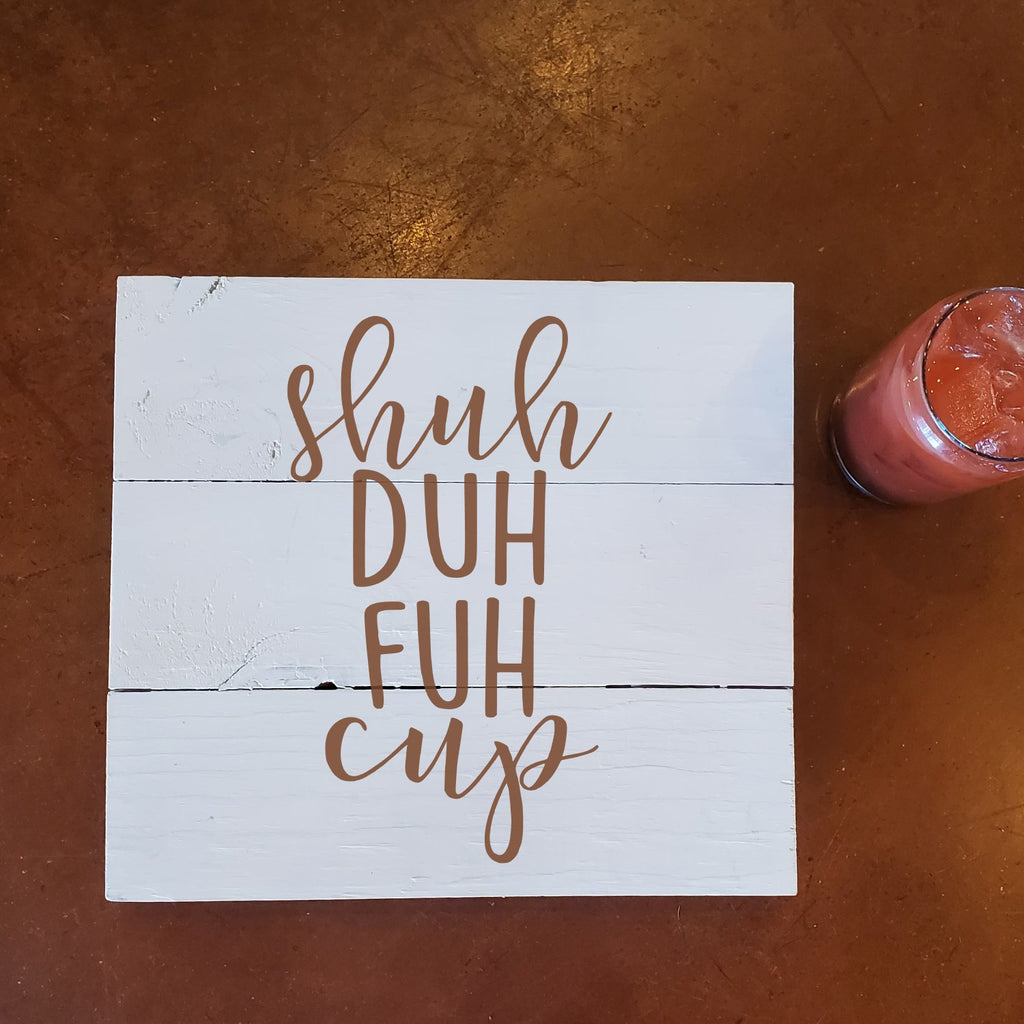 shuh
DUH
FUH
cup